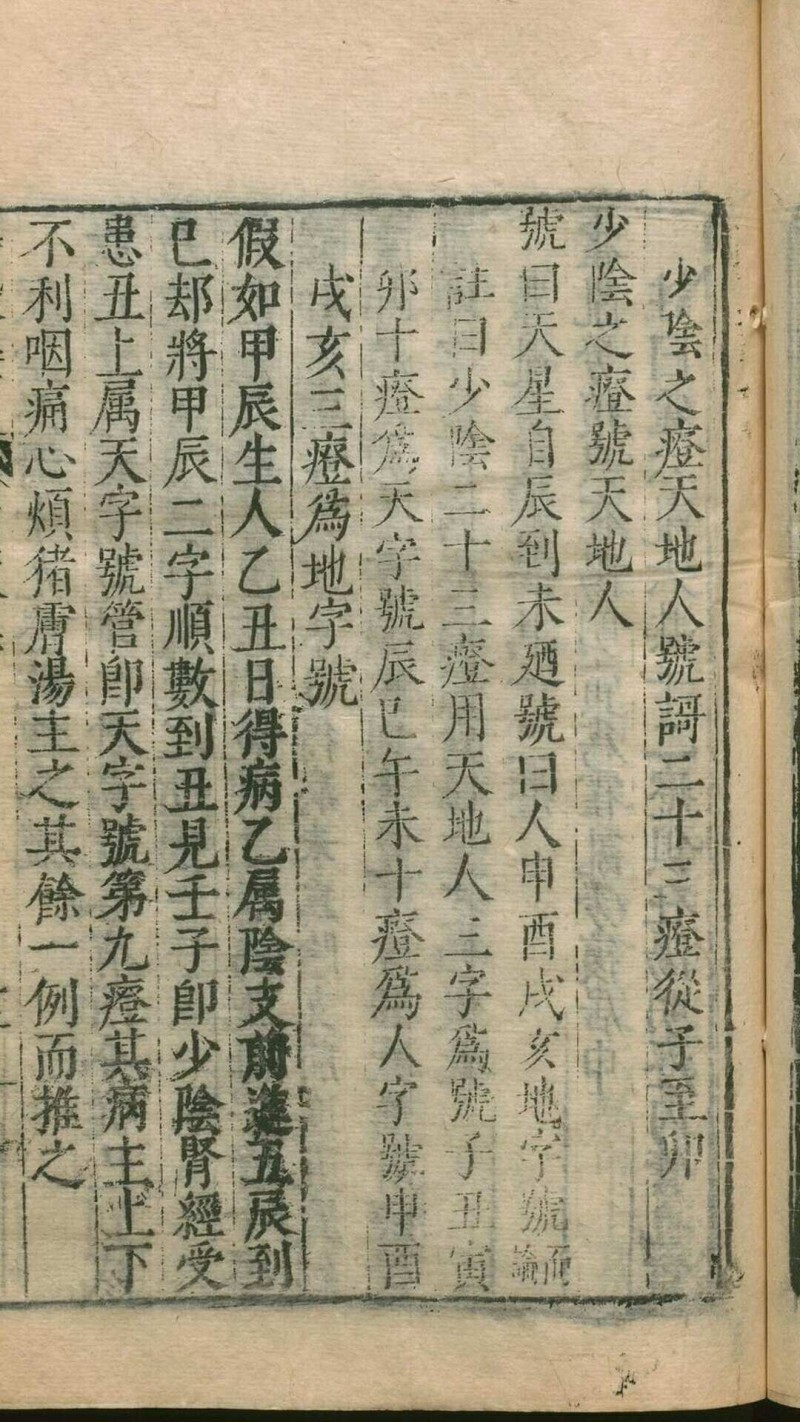 少陰之證天地人號謌二十三證從子至卯
少陰之證號天地人
號曰天星自辰到未廼號曰人申酉戌亥地字號
註曰少陰二十三證用天地人三字爲號子丑寅
卯十證爲天字號辰巳午未十證爲人字號申酉
戌亥三證爲地字號
假如甲辰生人乙丑日得病乙属陰支前進五辰到
巳却將甲辰二字順數到丑見壬子卽少陰腎經受
患丑上属天字號管卽天字號第九證其病主上下
不利咽痛心煩猪膚湯主之其餘一例而推之